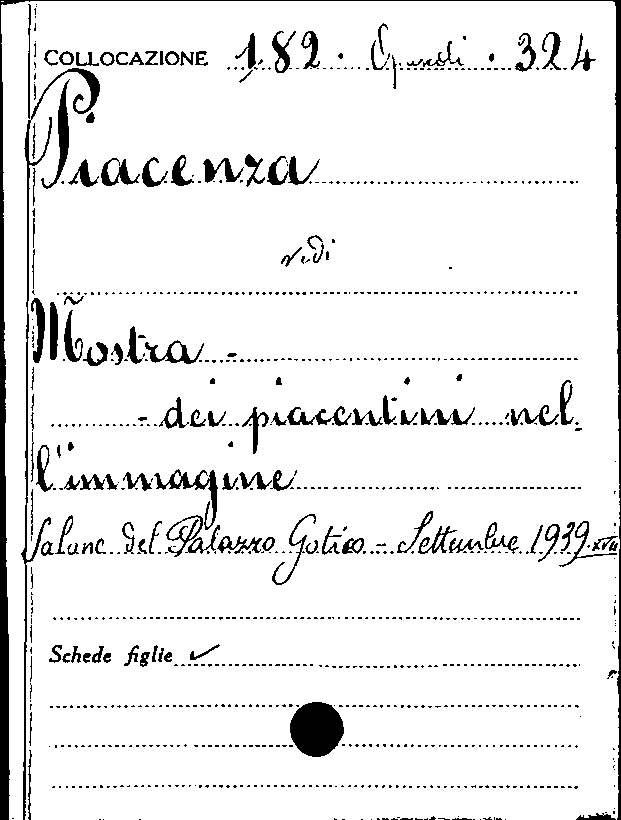 COLLOCAZIONE 182. Opuscoli. 324
Piacenza
vedi
Mostra -
- dei piacentini nel-
l'immagine
Salone del Palazzo Gotico - Settembre 1939 XVII
Schede figlie ✓